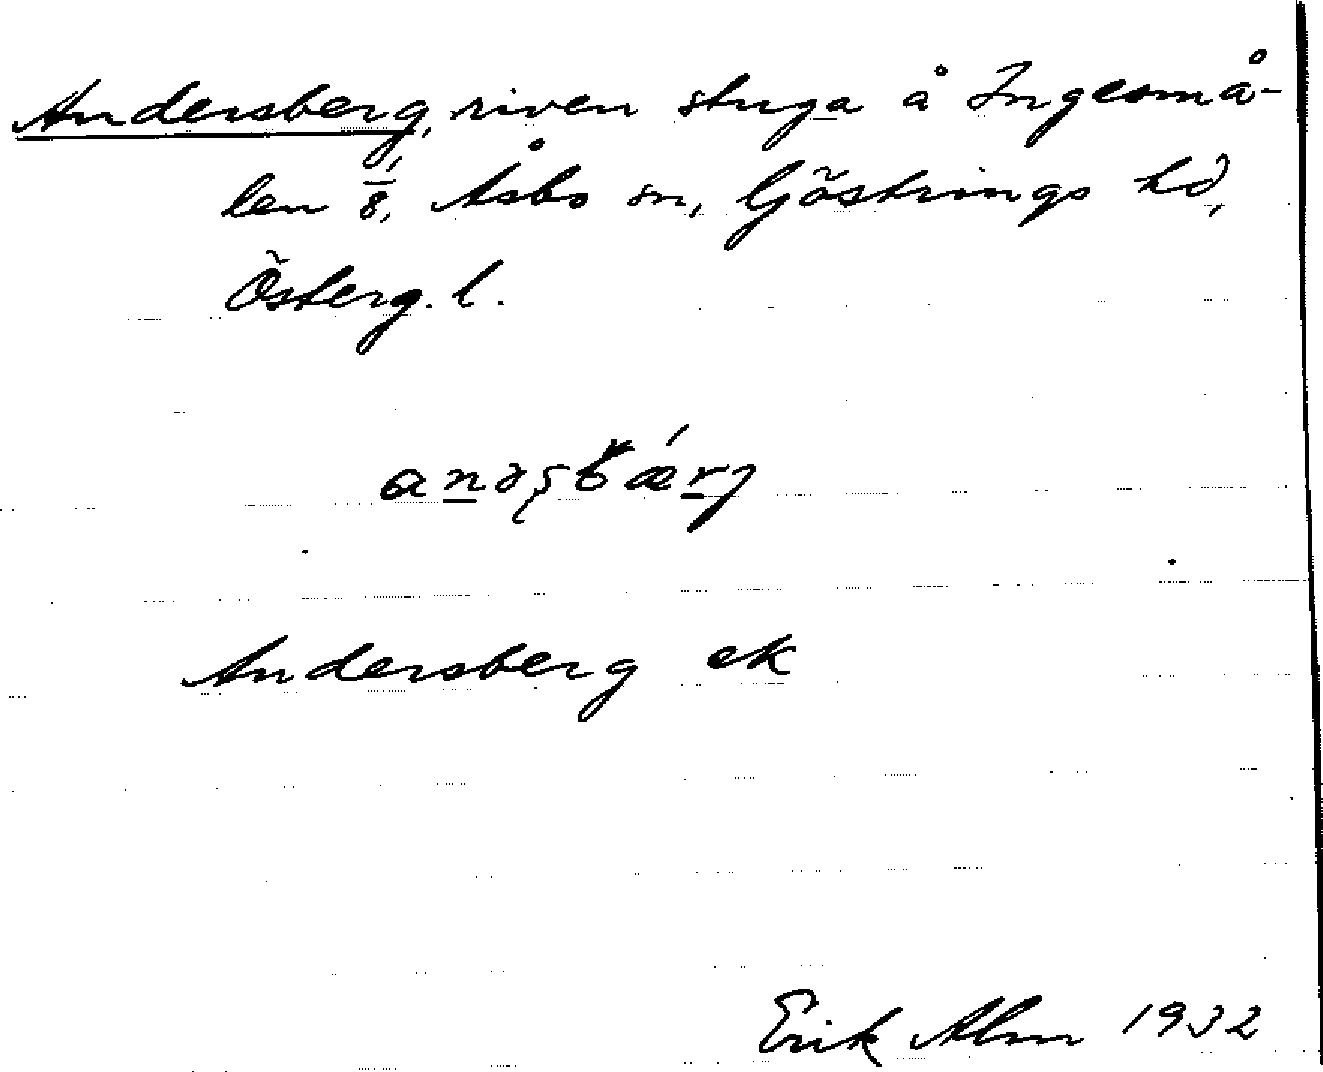 Andersberg, riven stuga å Ingesmå-
len 1/8, Åsbo sn, Göstrings hd,
Österg. l.
Andersberg ek
Erik Alm 1932